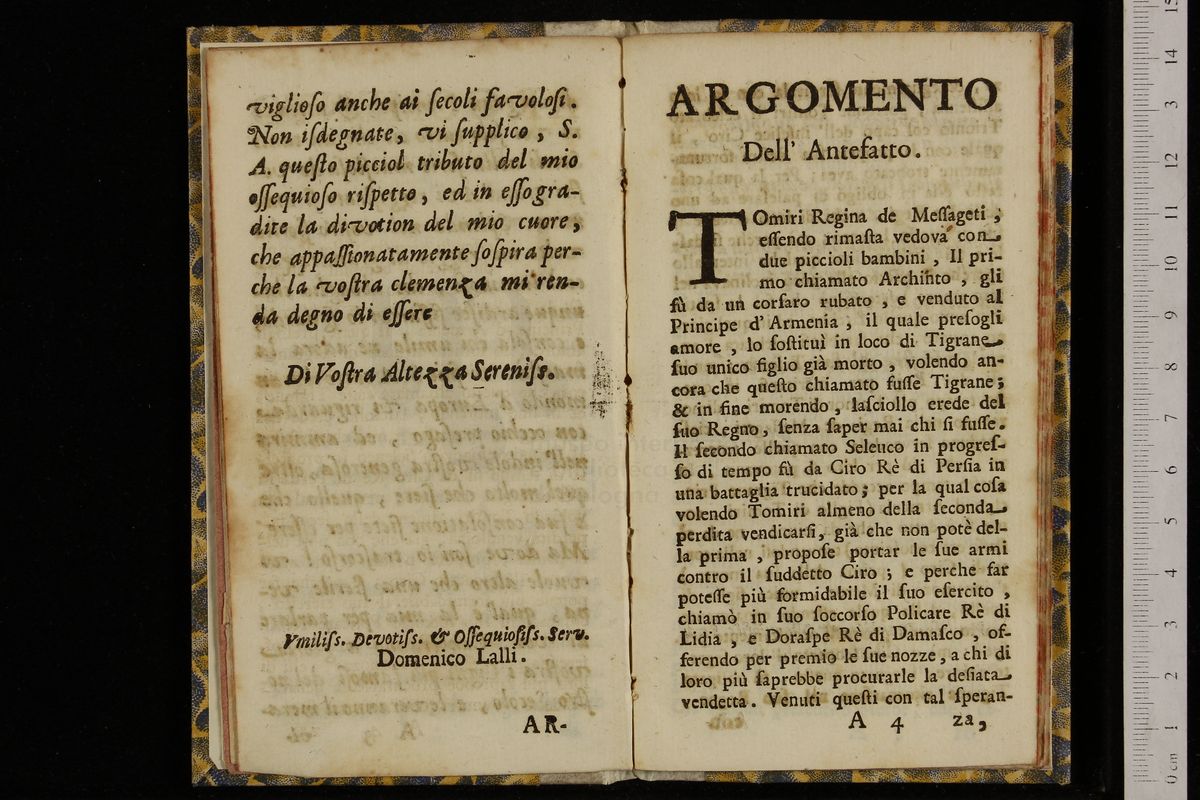 viglioſo anche ai ſecoli favoloſi.
Non iſdegnate, vi ſupplico, S.
A. queſto picciol tributo del mio
oſſequioſo riſpetto, ed in eſſogra-
dite la divotion del mio cuore,
che appaſſionatamente ſoſpira per-
che la voſtra clemenza mi ren-
da degno di eſſere
Di Voſtra Altezza Sereniſs.
Vmiliſs. Devotiſs. & Oſſequioſiſs. Serv.
Domenico Lalli.
AR-
ARGOMENTO
Dell' Antefatto.
TOmiri Regina de Meſſageti,
eſſendo rimaſta vedova con
due piccioli bambini, Il pri-
mo chiamato Archinto, gli
fù da un corſaro rubato, e venduto al
Principe d' Armenia, il quale preſogli
amore, lo ſoſtituì in loco di Tigrane
ſuo unico figlio già morto, volendo an-
cora che queſto chiamato fuſſe Tigrane;
& in fine morendo, laſciollo erede del
ſuo Regno, ſenza ſaper mai chi ſi fuſſe.
Il ſecondo chiamato Seleuco in progreſ-
ſo di tempo fù da Ciro Rè di Perſia in
una battaglia trucidato; per la qual coſa
volendo Tomiri almeno della ſeconda
perdita vendicarſi, già che non potè del-
la prima, propoſe portar le ſue armi
contro il ſuddetto Ciro; e perche far
poteſſe più formidabile il ſuo eſercito,
chiamò in ſuo ſoccorſo Policare Rè di
Lidia, e Doraſpe Rè di Damaſco, of-
ferendo per premio le ſue nozze, a chi di
loro più ſaprebbe procurarle la deſiata
vendetta. Venuti queſti con tal ſperan-
A 4 za,
0 cm 1 2 3 4 5 6 7 8 9 10 11 12 3 14 15